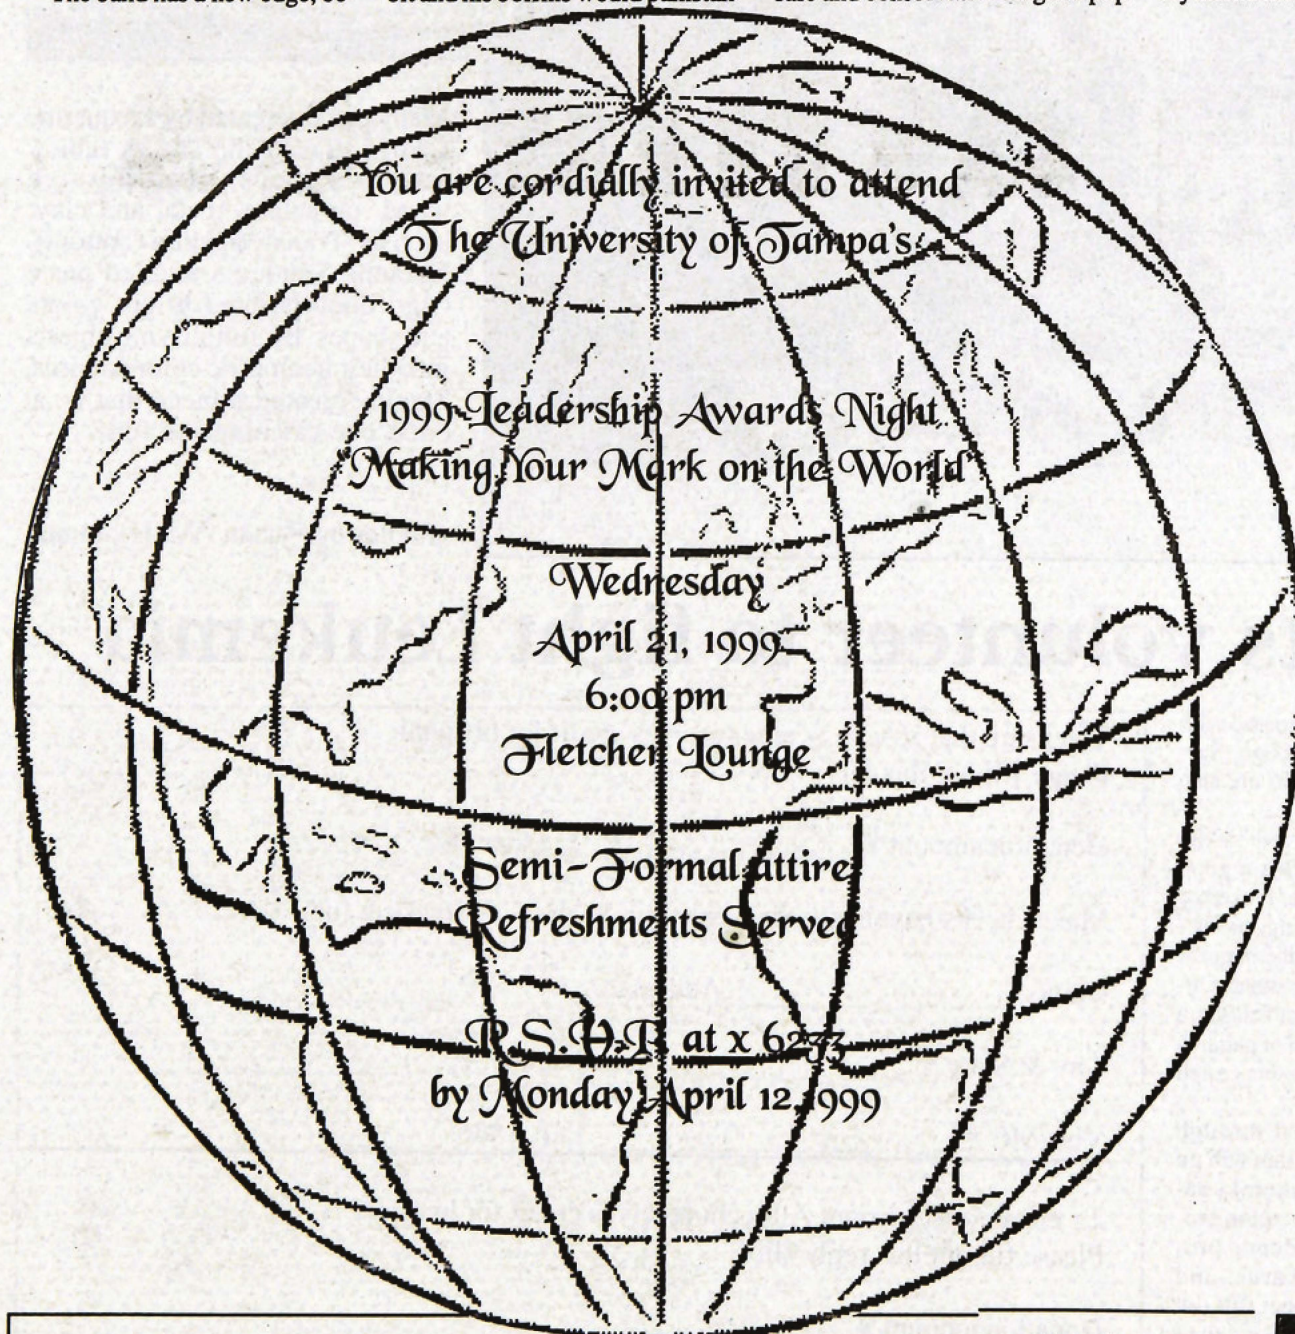 You are cordially invited to attend
The University of Tampa's
1999 Leadership Awards Night
"Making Your Mark on the World"
Wednesday
April 21, 1999
6:00 pm
Fletcher Lounge
Semi-Formal attire
Refreshments Served
R.S.V.P. at x 6233
by Monday April 12, 1999